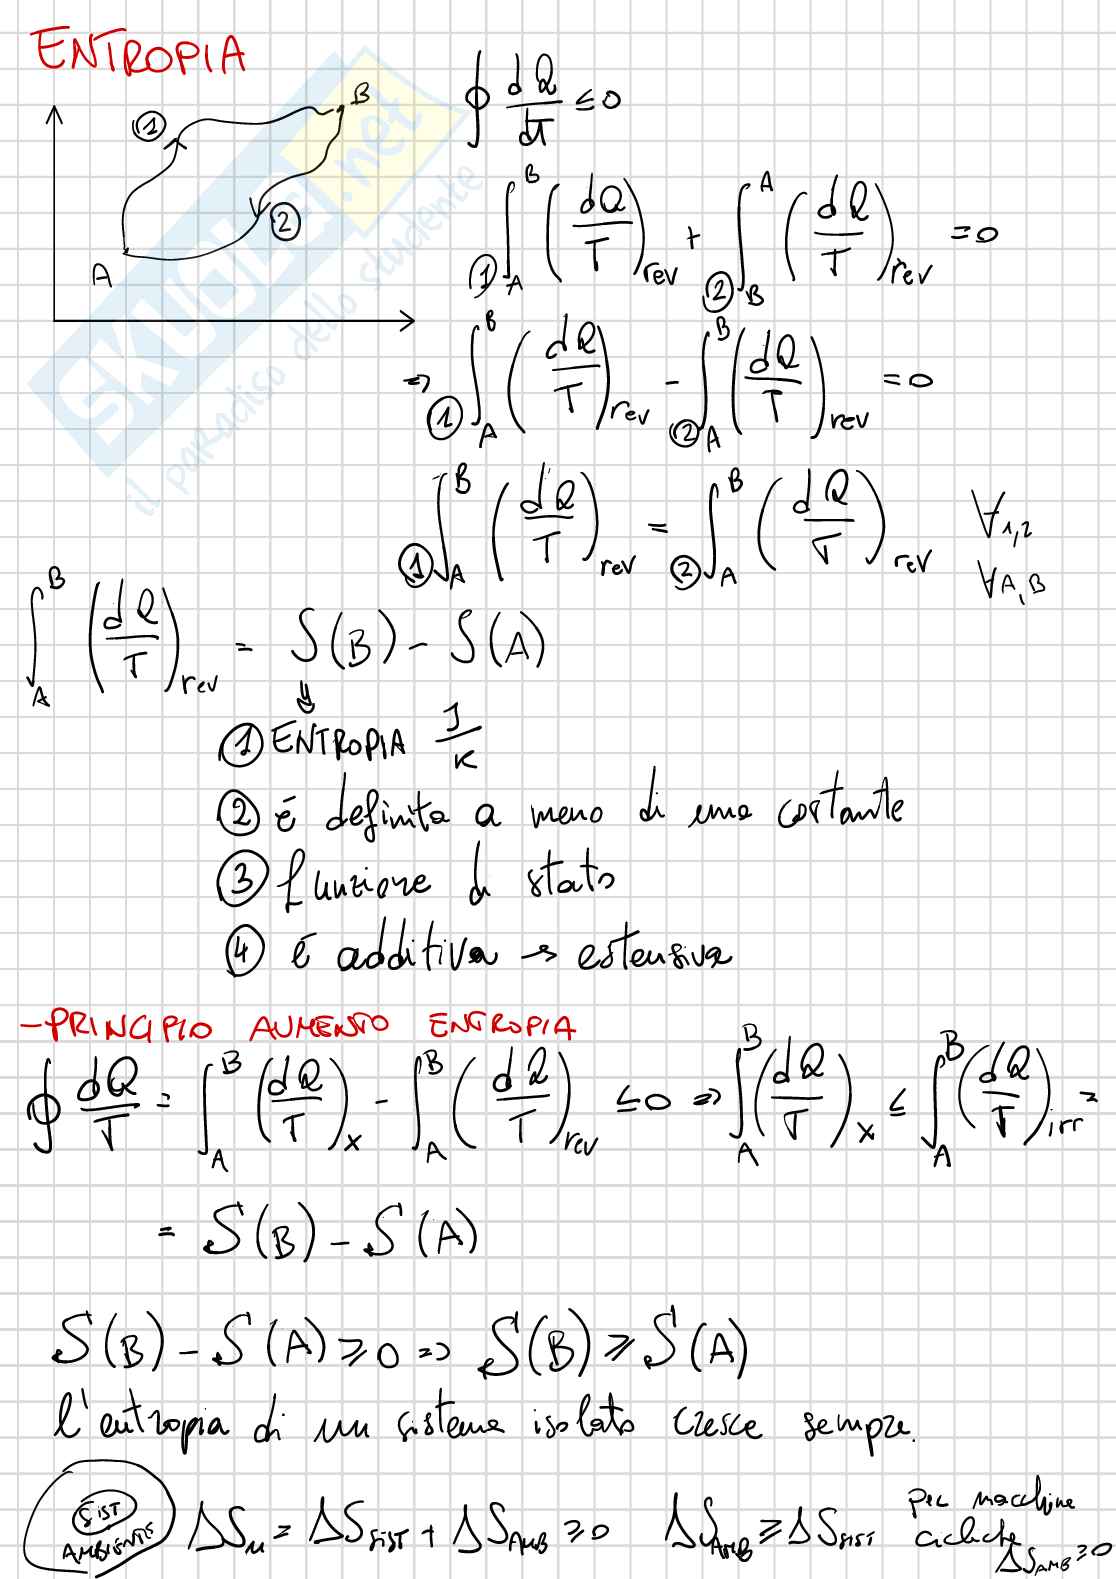 ENTROPIA
B
①
②
A
∮ dQ/dT ≤ 0
① ∫_A^B (dQ/T)_rev + ② ∫_B^A (dQ/T)_rev = 0
⇒ ① ∫_A^B (dQ/T)_rev - ② ∫_A^B (dQ/T)_rev = 0
① ∫_A^B (dQ/T)_rev = ② ∫_A^B (dQ/T)_rev ∀1,2
∀A,B
∫_A^B (dQ/T)_rev = S(B) - S(A)
⇓
① ENTROPIA J/K
② é definita a meno di una costante
③ funzione di stato
④ é additiva → estensiva
- PRINCIPIO AUMENTO ENTROPIA
∮ dQ/T = ∫_A^B (dQ/T)_x - ∫_A^B (dQ/T)_rev ≤ 0 ⇒ ∫_A^B (dQ/T)_x ≤ ∫_A^B (dQ/T)_irr =
= S(B) - S(A)
S(B) - S(A) ≥ 0 ⇒ S(B) ≥ S(A)
l'entropia di un sistema isolato cresce sempre.
SIST
AMBIENTE
ΔS_u = ΔS_SIST + ΔS_AMB ≥ 0 ΔS_AMB ≥ ΔS_SIST per macchine
cicliche
ΔS_AMB ≥ 0
SKUOLA.net
il paradiso dello studente